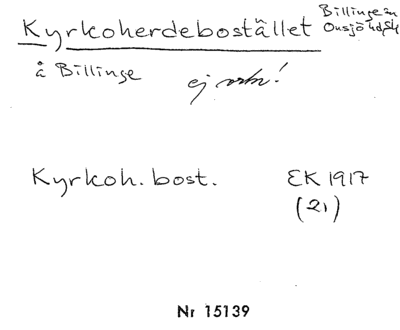 Kyrkoherdebostället
Billinge sn
Onsjö hd, Sk
å Billinge
ej
Kyrkoh. bost. EK 1917
(21)
Nr 15139